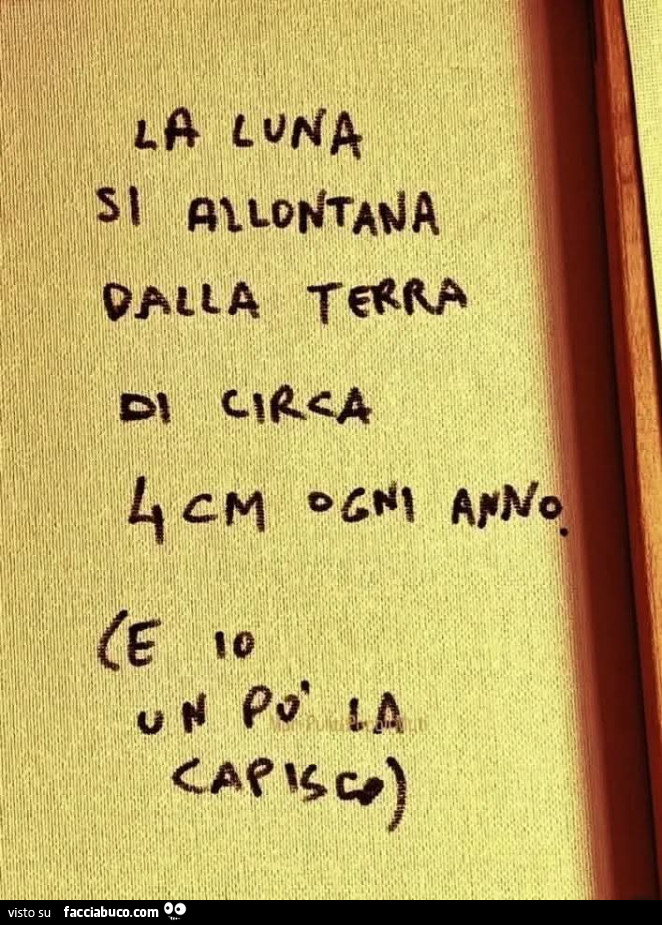 LA LUNA
SI ALLONTANA
DALLA TERRA
DI CIRCA
4 CM OGNI ANNO.
(E IO
UN PO' LA
CAPISCO)
visto su facciabuco.com